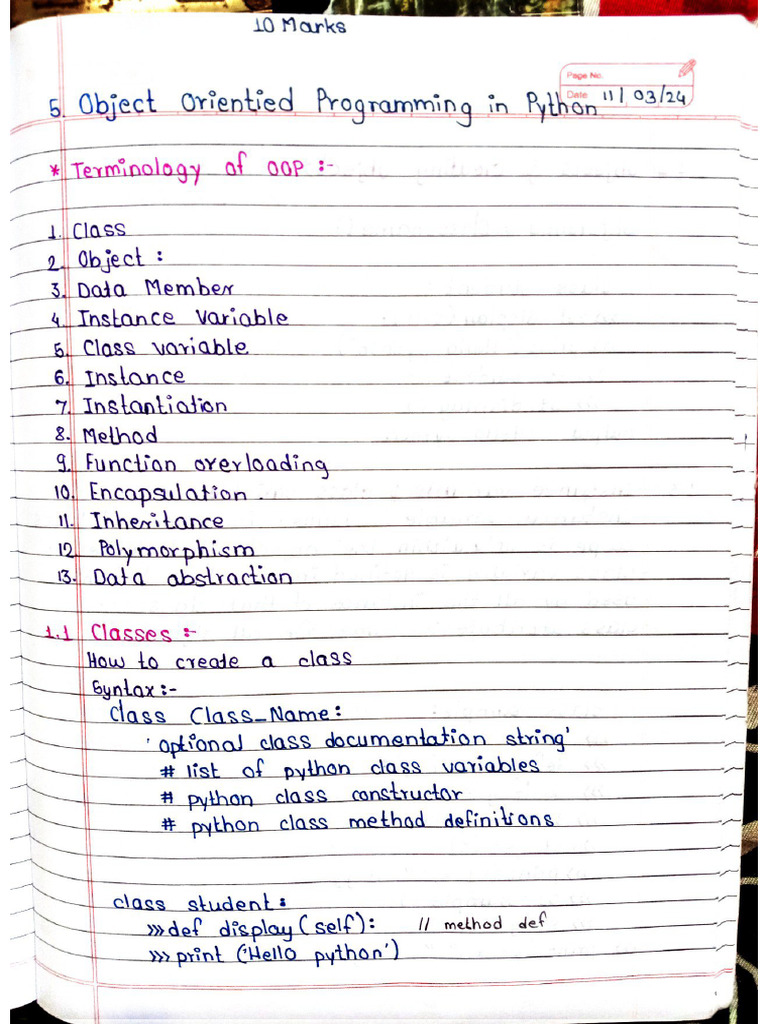 10 Marks
Page No.
Date 11/03/24
5. Object Orientied Programming in Python
* Terminology of OOP :-
1. Class
2. Object :
3. Data Member
4. Instance Variable
5. Class variable
6. Instance
7. Instantiation
8. Method
9. Function overloading
10. Encapsulation
11. Inheritance
12. Polymorphism
13. Data abstraction
1.1 Classes :-
How to create a class
Syntax:-
class Class_Name:
'optional class documentation string'
# list of python class variables
# python class constructor
# python class method definitions
class student:
>>>def display(self): // method def
>>>print ('Hello python')